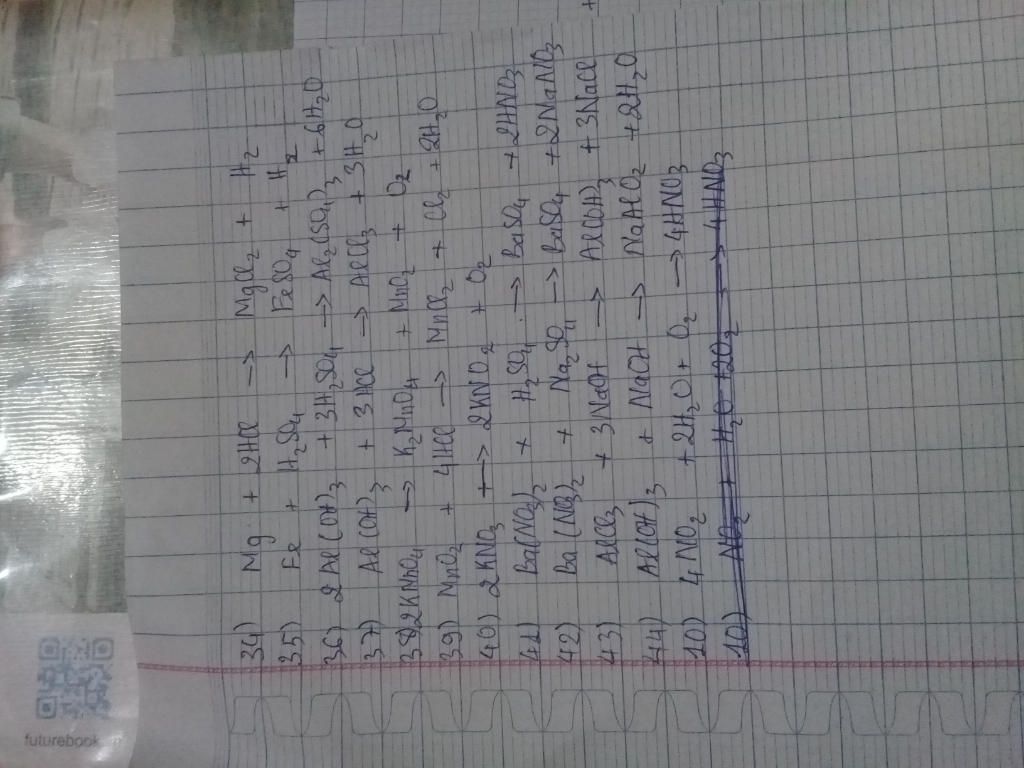 34) Mg + 2HCl → MgCl₂ + H₂
35) Fe + H₂SO₄ → FeSO₄ + H₂
36) 2Al(OH)₃ + 3H₂SO₄ → Al₂(SO₄)₃ + 6H₂O
37) Al(OH)₃ + 3HCl → AlCl₃ + 3H₂O
38) 2KMnO₄ → K₂MnO₄ + MnO₂ + O₂
39) MnO₂ + 4HCl → MnCl₂ + Cl₂ + 2H₂O
40) 2KNO₃ → 2KNO₂ + O₂
41) Ba(NO₃)₂ + H₂SO₄ → BaSO₄ + 2HNO₃
42) Ba(NO₃)₂ + Na₂SO₄ → BaSO₄ + 2NaNO₃
43) AlCl₃ + 3NaOH → Al(OH)₃ + 3NaCl
44) Al(OH)₃ + NaOH → NaAlO₂ + 2H₂O
10) 4NO₂ + 2H₂O + O₂ → 4HNO₃
10) NO₂ + H₂O + 2O₂ → 4HNO₃
futurebook